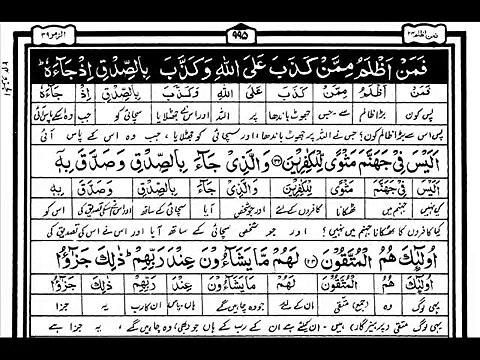 فمن اظلم ۲۴ ۹۹۵ الزمر ۳۹
فَمَنْ اَظْلَمُ مِمَّنْ كَذَبَ عَلَى اللّٰهِ وَكَذَّبَ بِالصِّدْقِ اِذْ جَآءَهٗ ؕ
فَمَنْ اَظْلَمُ مِمَّنْ كَذَبَ عَلَى اللّٰهِ وَكَذَّبَ بِالصِّدْقِ اِذْ جَآءَهٗ
پس کون بڑا ظالم سے جس جھوٹ باندھا پر اللہ اور اس نے جھٹلایا سچائی کو جب وہ اسکے پاس آئی
پس اس سے بڑا ظالم کون؟ جس نے اللہ پر جھوٹ باندھا، اور سچائی کو جھٹلایا، جب وہ اس کے پاس آئی
اَلَيْسَ فِيْ جَهَنَّمَ مَثْوًى لِّلْكٰفِرِيْنَ ۝۳۲ وَالَّذِيْ جَآءَ بِالصِّدْقِ وَصَدَّقَ بِهٖٓ
اَلَيْسَ فِيْ جَهَنَّمَ مَثْوًى لِّلْكٰفِرِيْنَ وَالَّذِيْ جَآءَ بِالصِّدْقِ وَصَدَّقَ بِهٖٓ
کیا نہیں جہنم میں ٹھکانا کافروں کے لئے اور جو شخص آیا سچائی کے ساتھ اور اس نے اسکی تصدیق کی اس کو
کیا کافروں کا ٹھکانا جہنم میں نہیں؟ اور جو شخص سچائی کے ساتھ آیا اور اس نے اس کی تصدیق کی
اُولٰٓئِكَ هُمُ الْمُتَّقُوْنَ ۝۳۳ لَهُمْ مَّا يَشَآءُوْنَ عِنْدَ رَبِّهِمْ ؕ ذٰلِكَ جَزٰٓؤُا
اُولٰٓئِكَ هُمُ الْمُتَّقُوْنَ لَهُمْ مَّا يَشَآءُوْنَ عِنْدَ رَبِّهِمْ ذٰلِكَ جَزٰٓؤُا
یہی لوگ وہ (جمع) متقی ان کے لئے جو وہ چاہیں گے ہاں۔ پاس ان کا رب یہ جزا
یہی لوگ متقی (پرہیزگار) ہیں۔ ان کے لئے ہے ان کے رب کے ہاں جو (بھی) وہ چاہیں گے، یہ جزا ہے